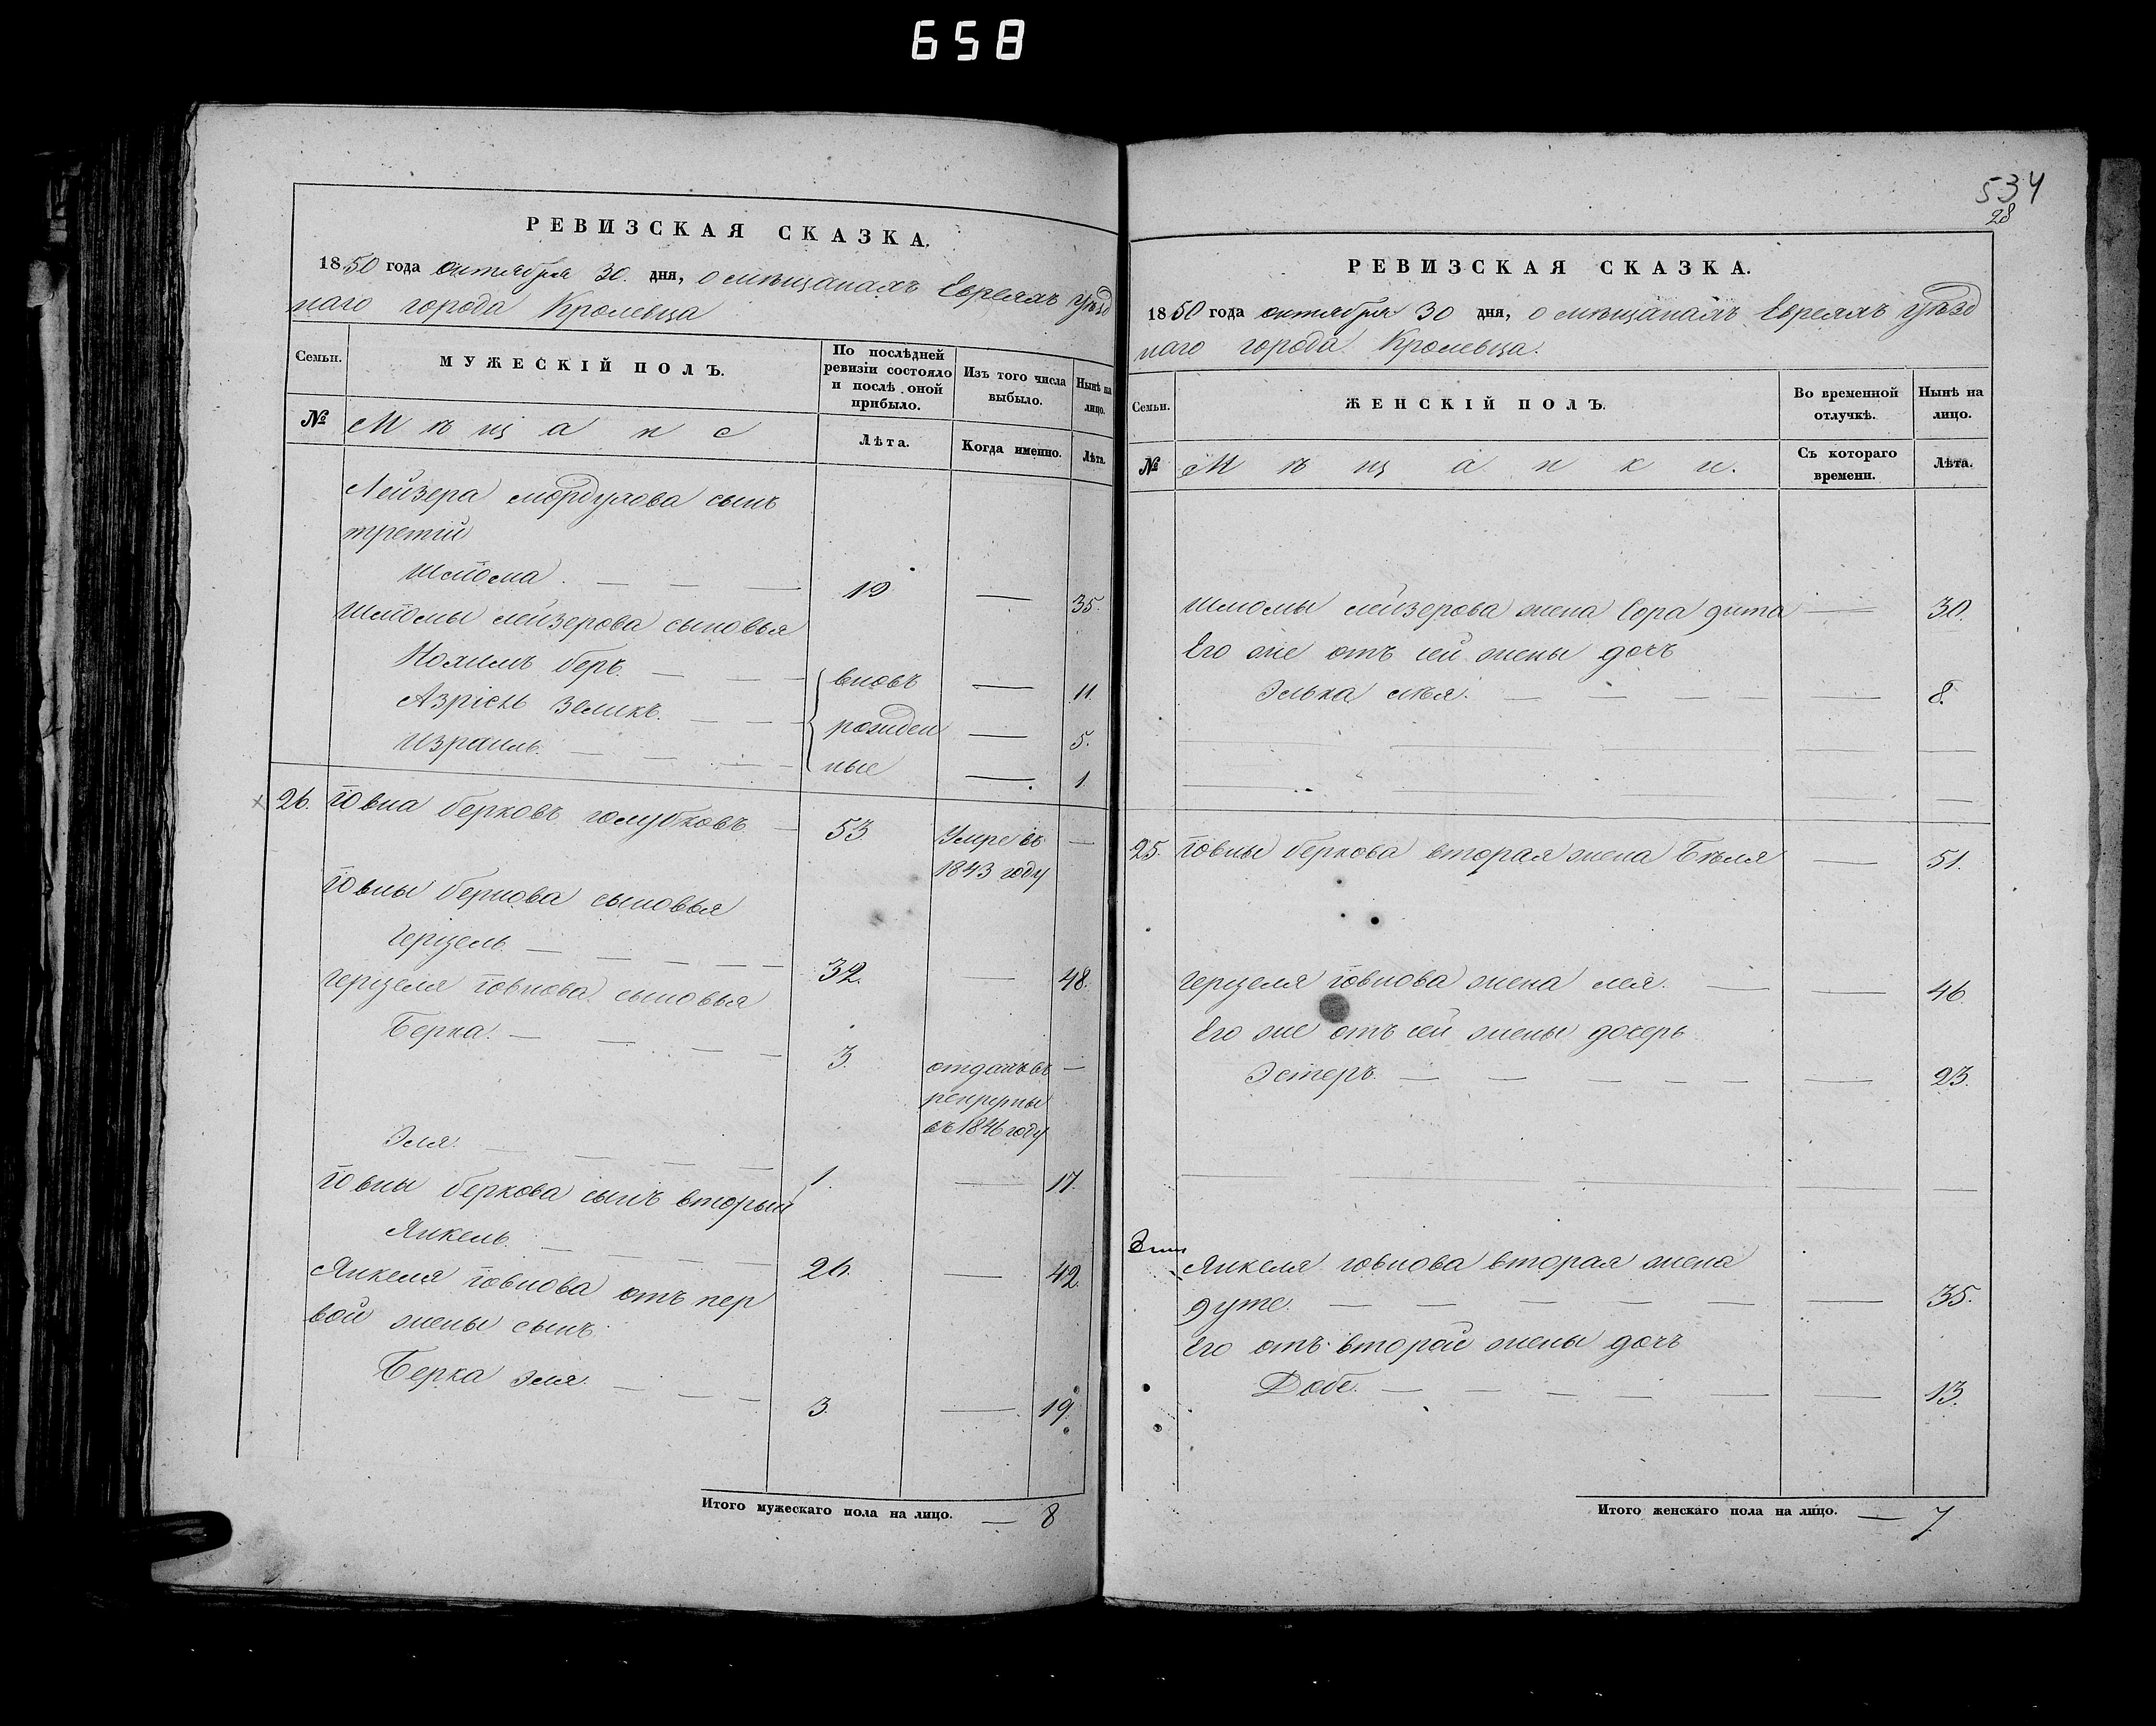 658
РЕВИЗСКАЯ СКАЗКА.
1850 года октября 30. дня, о мѣщанахъ Евреяхъ уѣзд
наго города Кролевца
Семьи.
МУЖЕСКІЙ ПОЛЪ.
По послѣдней ревизіи состояло и послѣ оной прибыло.
Изъ того числа выбыло.
Нынѣ на лицо.
№
Мѣщане
Лѣта.
Когда именно.
Лѣта.
Лейзера мордухова сынъ
третій
Шліома. 19 — 35.
Шліомы лейзерова сыновья
Нохимъ беръ. вновь — 11.
Азріель Зеликъ. рожден — 5.
Израиль. ные — 1.
26. Іовна берковъ голубковъ — 53. Умре въ —
1843 году
Іовны беркова сыновья
Герцель. 32. — 48.
Герцеля Іовнова сыновья
Берка. 3. отданъ въ —
рекруты
въ 1846 году
Эля. 1. — 17.
Іовны беркова сынъ вторый
Янкель. 26. — 42.
Янкеля Іовнова отъ пер
вой жены сынъ
Берка Эля. 3. — 19.
Итого мужескаго пола на лицо. — 8
534
28
РЕВИЗСКАЯ СКАЗКА.
1850 года октября 30 дня, о мѣщанахъ Евреяхъ уѣзд
наго города Кролевца.
Семьи.
ЖЕНСКІЙ ПОЛЪ.
Во временной отлучкѣ.
Нынѣ на лицо.
№
Мѣщанки.
Съ котораго времени.
Лѣта.
Шлиомы лейзерова жена Сора гита — 30.
Его же отъ сей жены дочь
Элька лѣя. — 8.
25. Іовны беркова вторая жена Бѣля — 51.
Герцеля Іовнова жена лея. — 46.
Его же отъ сей жены дочерь
Эстеръ. — 23.
Янкеля Іовнова вторая жена
гуте. — 35.
Его отъ второй жены дочь
Добе. — 13.
Итого женскаго пола на лицо. — 7